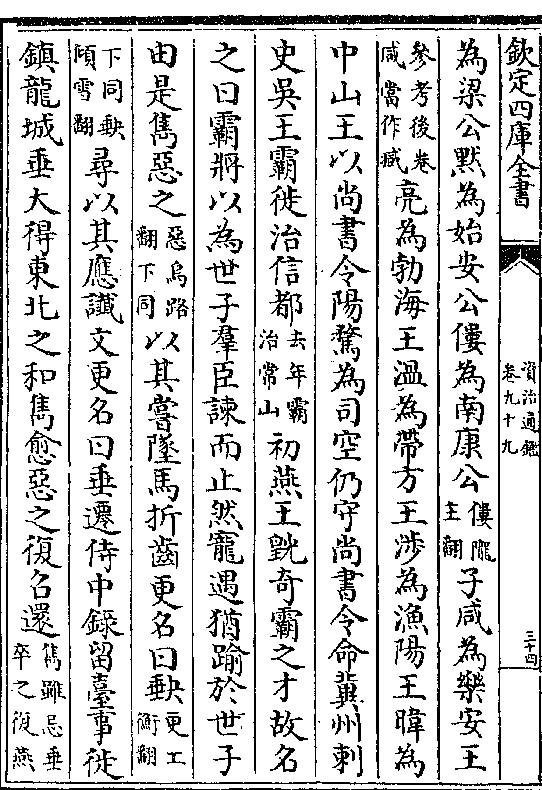 欽定四庫全書
資治通鑑
卷九十九
三十四
為梁公默為始安公僂為南康公僂隴主翻子咸為樂安王
參考後卷咸當作臧亮為勃海王溫為帶方王涉為漁陽王暐為
中山王以尚書令陽騖為司空仍守尚書令命冀州刺
史吳王霸徙治信都去年霸治常山初燕王皝奇霸之才故名
之曰霸將以為世子羣臣諫而止然寵遇猶踰於世子
由是雋惡之惡烏路翻下同以其嘗墜馬折齒更名曰𡙇更工衡翻
下同𡙇傾雪翻尋以其應讖文更名曰垂遷侍中錄留臺事徙
鎮龍城垂大得東北之和雋愈惡之復召還雋雖忌垂卒之復燕